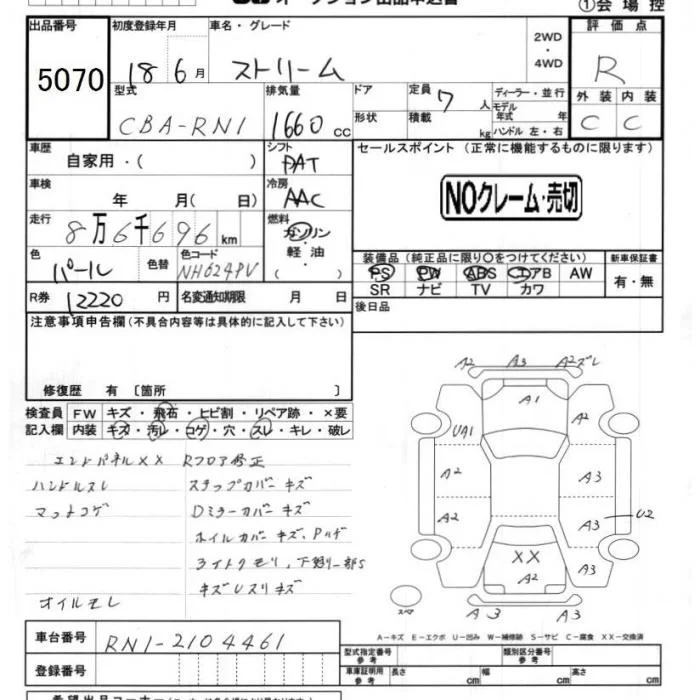 オークション出品申込書
①会場控
出品番号 5070
初度登録年月 18 6月
車名・グレード ストリーム
2WD・4WD
評価点 R
型式 CBA-RN1
排気量 1660cc
ドア
形状
定員 7人
積載 kg
ディーラー・並行
モデル年式 年式
ハンドル 左・右
外装 C
内装 C
車歴 自家用・( )
シフト PAT
セールスポイント (正常に機能するものに限ります)
NOクレーム・売切
車検 年 月( 日)
冷房 AAC
走行 8万6千696km
燃料 ガソリン・軽油・( )
色 パール
色替
色コード NH624PV
装備品 (純正品に限り○をつけてください)
PS PW ABS エアB AW
SR ナビ TV カワ
新車保証書 有・無
R券 12220円
名変通知期限 月 日
後日品
注意事項申告欄 (不具合内容等は具体的に記入して下さい)
修復歴 有 〔箇所 〕
検査員記入欄
FW キズ・飛石・ヒビ割・リペア跡・×要
内装 キズ・汚レ・コゲ・穴・スレ・キレ・破レ
エンドパネルXX Rフロア修正
ハンドルスレ ステップカバーキズ
マットコゲ Dミラーカバーキズ
ホイルカバーキズ、Pハゲ
ライトクモリ、下廻り一部S
キズUスリキズ
オイルモレ
A2 A3 A2ズレ
A1
A2
UA1
A2 A3
A2 A3 U2
XX
A2
A3
スペア
A3 A3
A-キズ E-エクボ U-凹み W-補修跡 S-サビ C-腐食 XX-交換済
車台番号 RN1-2104461
登録番号
型式指定番号 参考
類別区分番号 参考
車庫証明用 参考
長さ cm 幅 cm 高さ cm